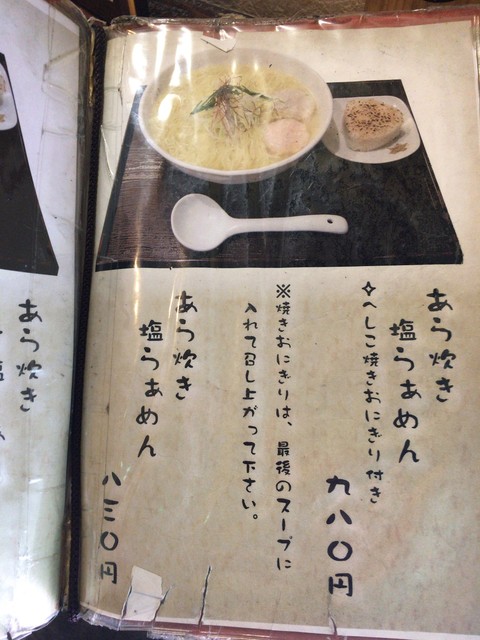 あら炊き
塩らぁめん
✧へしこ焼きおにぎり付き
九八〇円
※焼きおにぎりは、最後のスープに
入れて召し上がって下さい。
あら炊き
塩らぁめん
八三〇円
あら炊き
塩